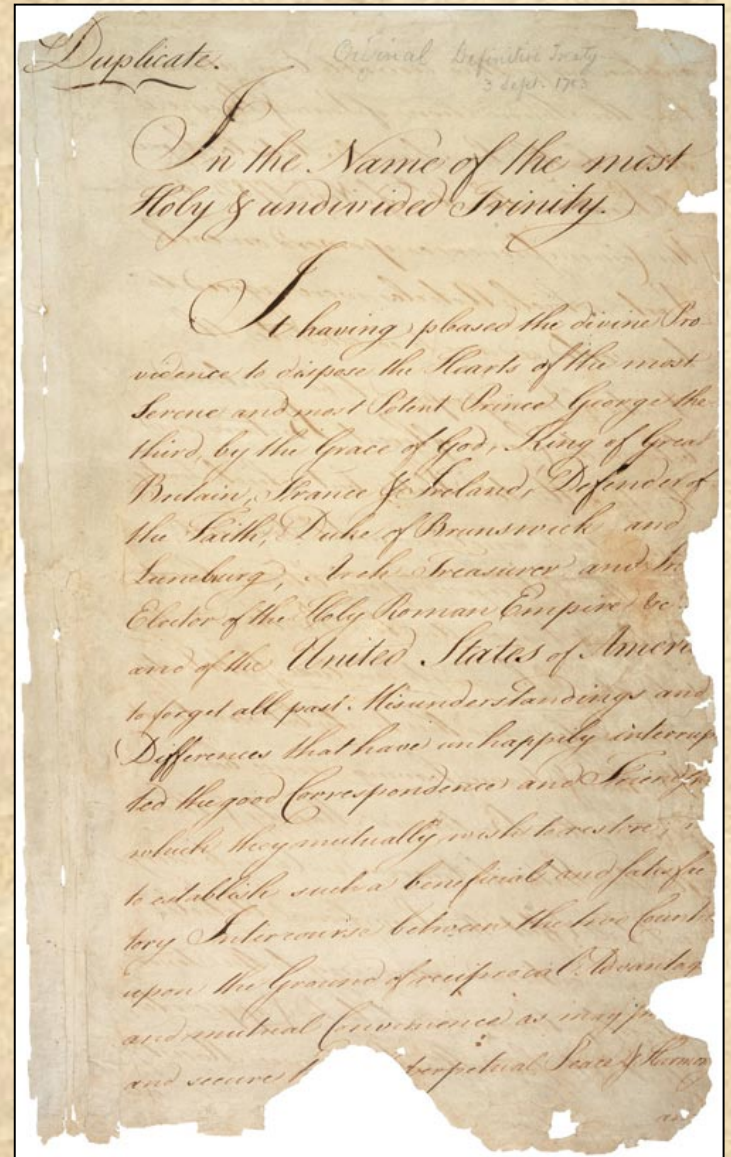 Duplicate.
Original Definitive Treaty
3 Sept. 1783
In the Name of the most
Holy & undivided Trinity.
It having pleased the divine Pro
vidence to dispose the Hearts of the most
Serene and most Potent Prince George the
third, by the Grace of God, King of Great
Britain, France & Ireland, Defender of
the Faith, Duke of Brunswick and
Luneburg, Arch Treasurer and
Elector of the Holy Roman Empire &c.
and of the United States of Ameri
to forget all past Misunderstandings and
Differences that have unhappily interrup
ted the good Correspondence and Friendship
which they mutually wish to restore;
to establish such a beneficial and satisfac
tory Intercourse between the two Countr
upon the Ground of reciprocal Advantag
and mutual Convenience as may
and secure perpetual Peace & Harmony